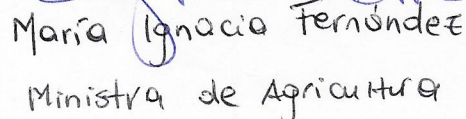 María Ignacia Fernández
Ministra de Agricultura